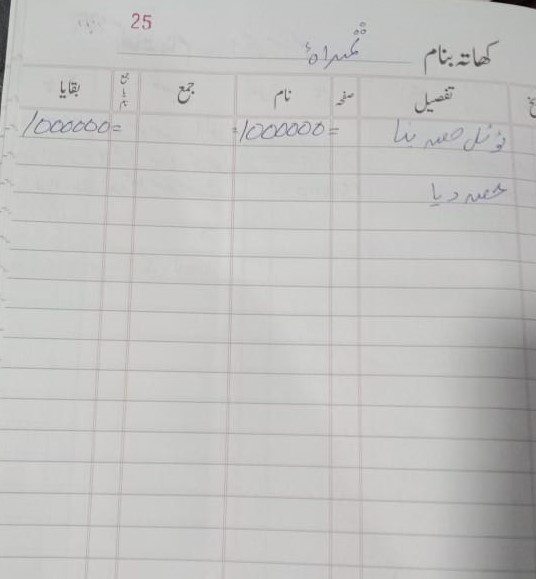 25
کھاتہ بنام
تفصیل صفحہ نام جمع جمع یا نام بقایا
ٹوٹل حصہ بنا 1000000= 1000000=
حصہ دیا